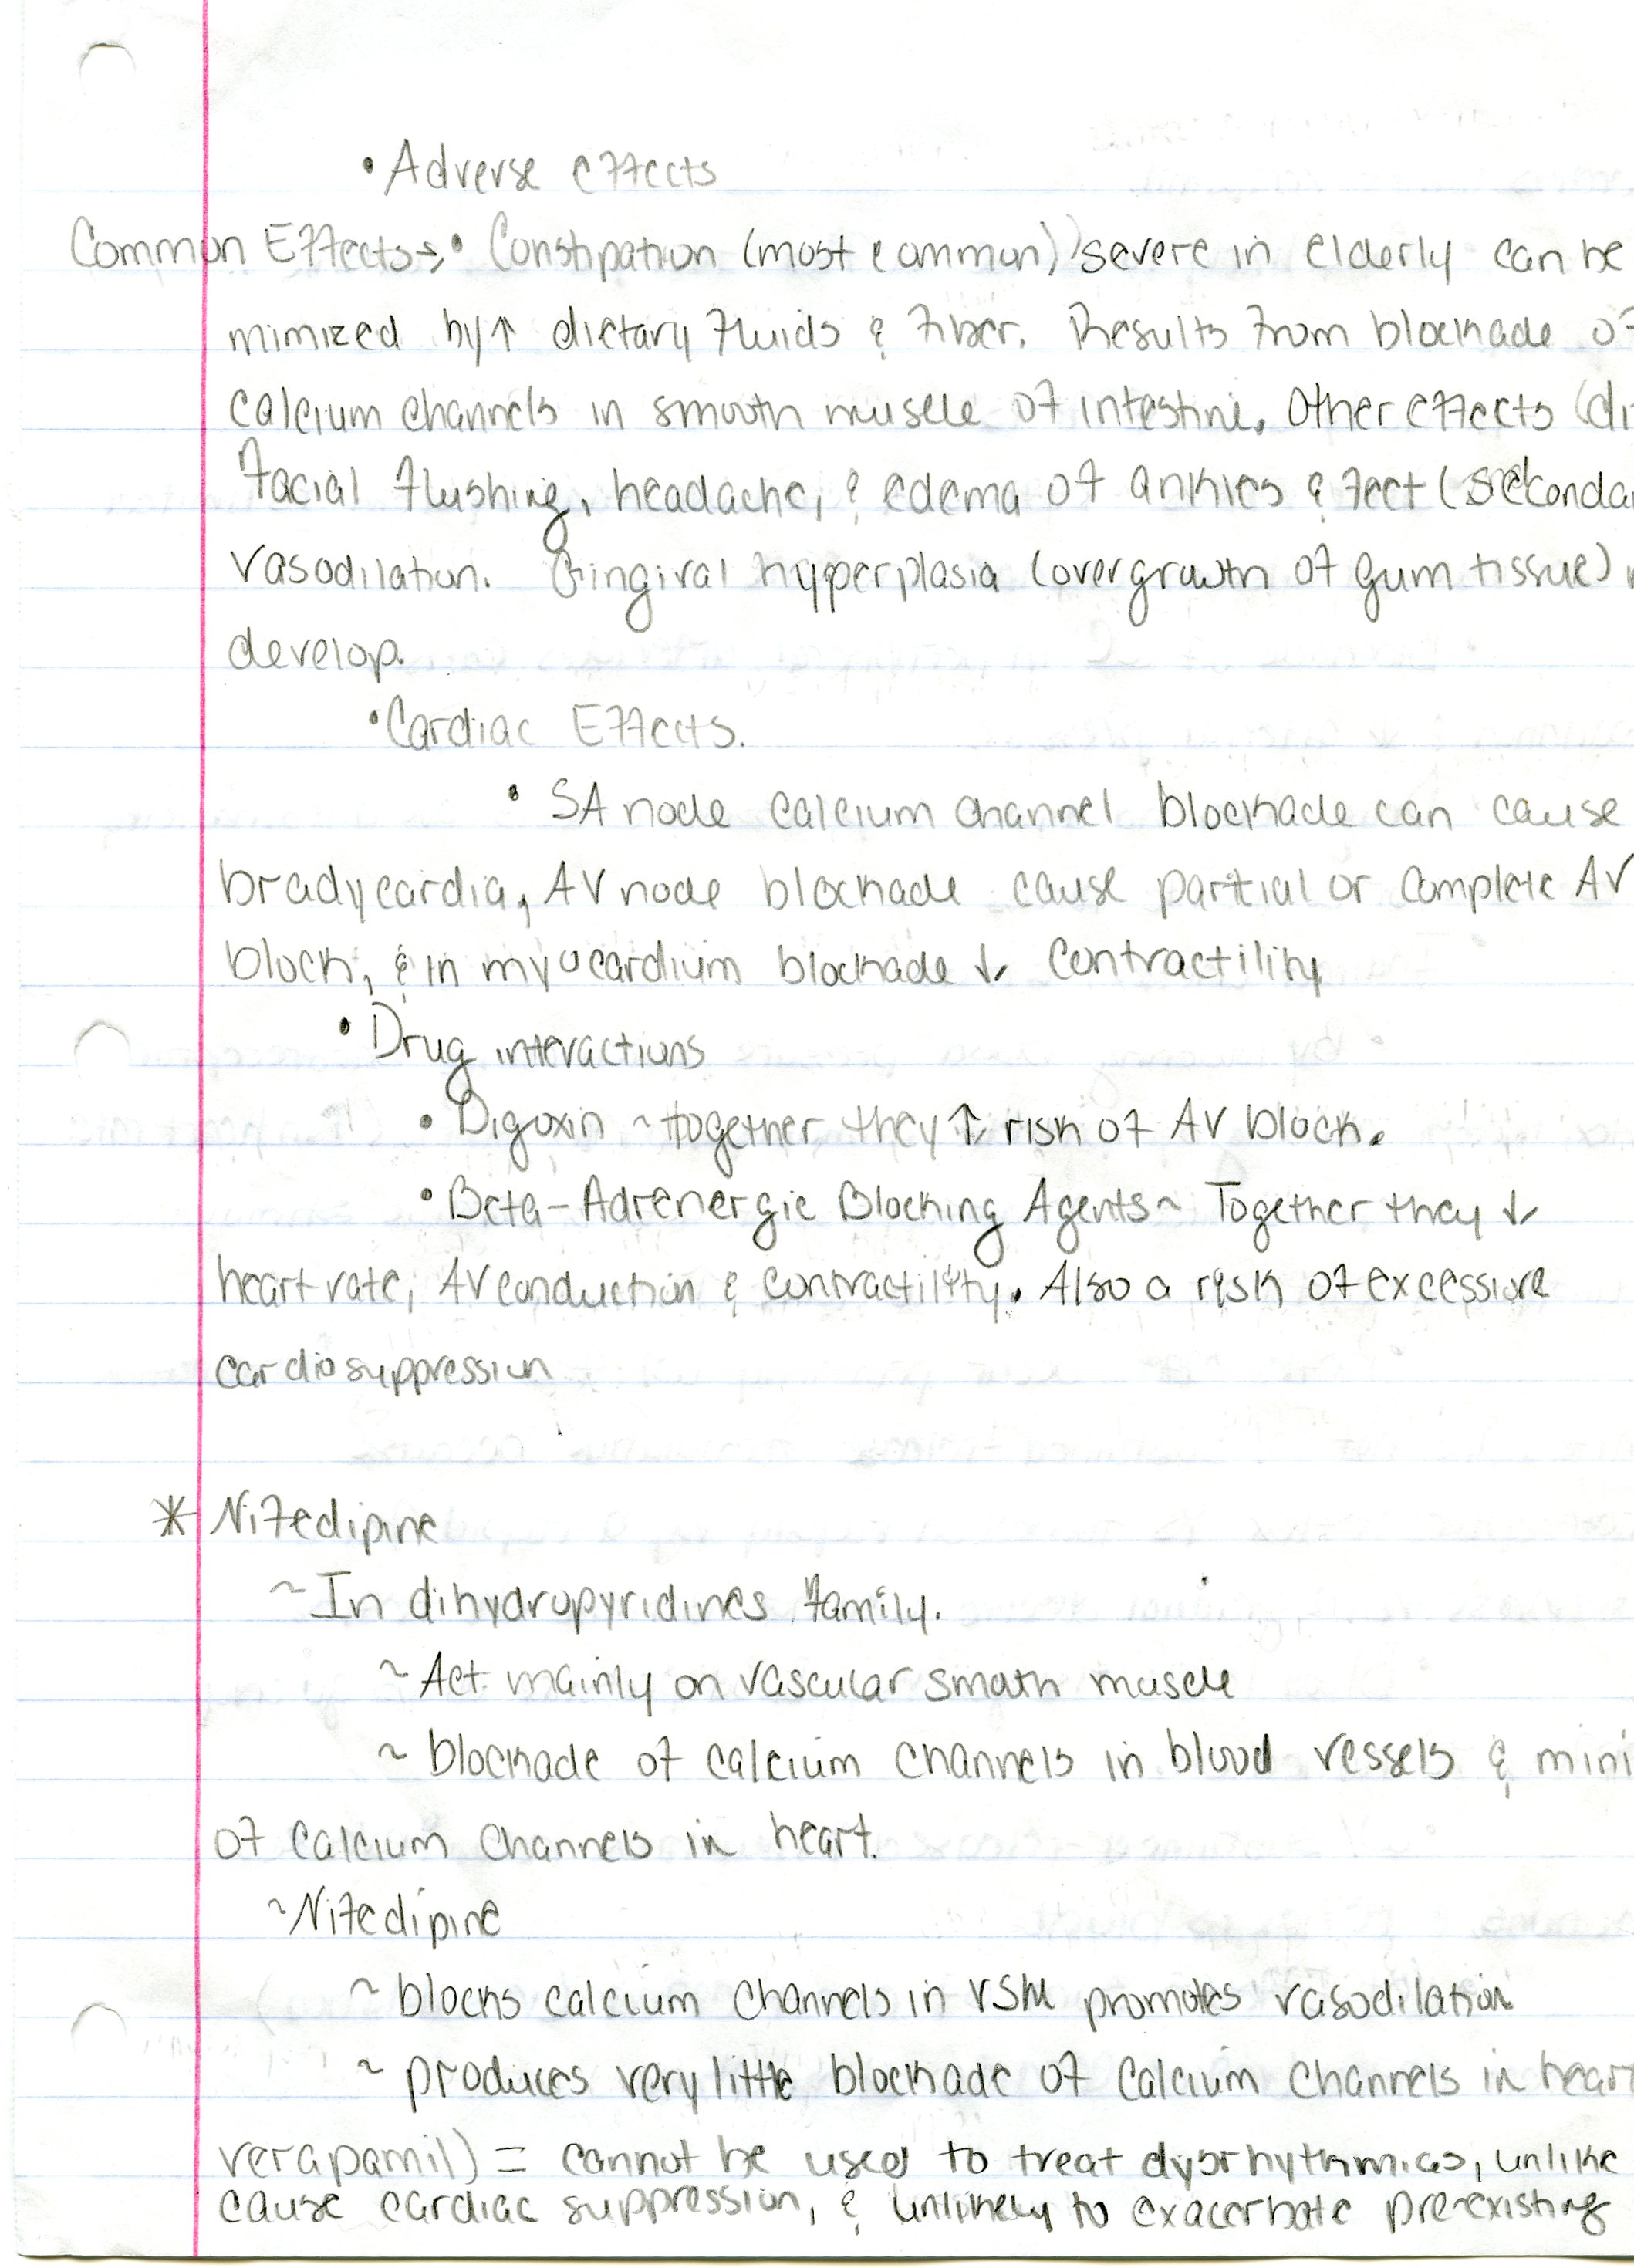 • Adverse effects
Common Effects→• Constipation (most common) severe in elderly can be
mimized by ↑ dietary fluids & fiber. Results from blockade of
calcium channels in smooth muscle of intestine. Other effects (di
facial flushing, headache, & edema of ankles & feet (seconda
vasodilation. Gingival hyperplasia (overgrowth of gum tissue)
develop.
• Cardiac Effects.
• SA node calcium channel blockade can cause
bradycardia, AV node blockade cause partial or complete AV
block, & in myocardium blockade ↓ contractility
• Drug interactions
• Digoxin ~ together they ↑ risk of AV block.
• Beta-Adrenergic Blocking Agents ~ Together they ↓
heart rate, AV conduction & contractility. Also a risk of excessive
cardiosuppression
* Nifedipine
~ In dihydropyridines family.
~ Act mainly on vascular smooth muscle
~ blockade of calcium channels in blood vessels & mini
of calcium channels in heart.
~ Nifedipine
~ blocks calcium channels in VSM promotes vasodilation
~ produces very little blockade of calcium channels in heart
verapamil) = cannot be used to treat dysrhythmias, unlike
cause cardiac suppression, & unlikely to exacerbate pre-existing